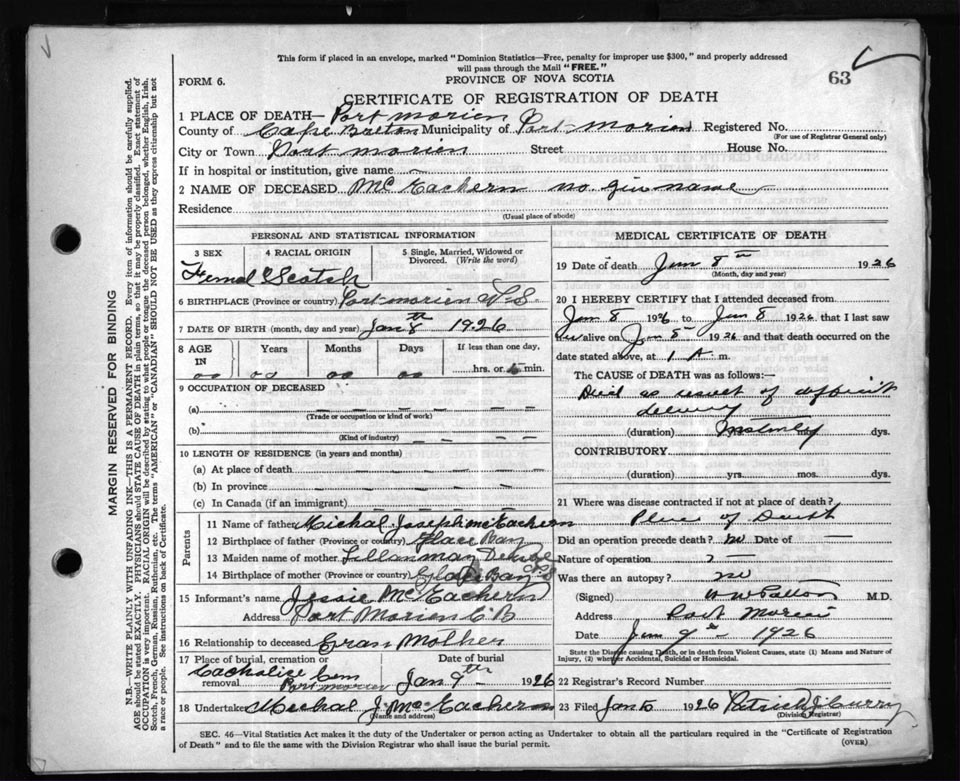 This form if placed in an envelope, marked "Dominion Statistics—Free, penalty for improper use $300," and properly addressed
will pass through the Mail "FREE."
FORM 6.
PROVINCE OF NOVA SCOTIA
63
CERTIFICATE OF REGISTRATION OF DEATH
1 PLACE OF DEATH— Port Morien
County of Cape Breton Municipality of Port Morien Registered No.
(For use of Registrar General only)
City or Town Port Morien Street House No.
If in hospital or institution, give name
2 NAME OF DECEASED McEachern no name
Residence
(Usual place of abode)
PERSONAL AND STATISTICAL INFORMATION
3 SEX 4 RACIAL ORIGIN 5 Single, Married, Widowed or
Divorced. (Write the word)
Scotch
6 BIRTHPLACE (Province or country) Port Morien
7 DATE OF BIRTH (month, day and year) Jan 8th 1926
8 AGE Years Months Days If less than one day,
IN
hrs. or min.
9 OCCUPATION OF DECEASED
(a)
(Trade or occupation or kind of work)
(b)
(Kind of industry)
10 LENGTH OF RESIDENCE (in years and months)
(a) At place of death
(b) In province
(c) In Canada (if an immigrant)
Parents
11 Name of father Michal Joseph McEachern
12 Birthplace of father (Province or country) Glace Bay
13 Maiden name of mother
14 Birthplace of mother (Province or country) Glace Bay
15 Informant's name Jessie McEachern
Address Port Morien C B
16 Relationship to deceased Gran Mother
17 Place of burial, cremation or Date of burial
removal Cem Port Morien Jan 9th 1926
18 Undertaker Michal J McEachern
(Name and address)
MEDICAL CERTIFICATE OF DEATH
19 Date of death Jan 8th 1926
(Month, day and year)
20 I HEREBY CERTIFY that I attended deceased from
Jan 8 1926 to Jan 8 1926 that I last saw
alive on Jan 8 1926 and that death occurred on the
date stated above, at 1 A m.
The CAUSE OF DEATH was as follows:—
Died as result of
(duration) mos. dys.
CONTRIBUTORY
(duration) yrs. mos. dys.
21 Where was disease contracted if not at place of death?
Place of Death
Did an operation precede death? no Date of
Nature of operation
Was there an autopsy? no
(Signed) M.D.
Address Port Morien
Date Jan 9th 1926
State the Disease causing Death, or in death from Violent Causes, state (1) Means and Nature of
Injury, (2) whether Accidental, Suicidal or Homicidal.
22 Registrar's Record Number
23 Filed Jan 1926 Patrick J Curry
(Division Registrar)
SEC. 46—Vital Statistics Act makes it the duty of the Undertaker or person acting as Undertaker to obtain all the particulars required in the "Certificate of Registration
of Death" and to file the same with the Division Registrar who shall issue the burial permit.
(OVER)
MARGIN RESERVED FOR BINDING
N.B.—WRITE PLAINLY WITH UNFADING INK—THIS IS A PERMANENT RECORD. Every item of information should be carefully supplied.
AGE should be stated EXACTLY. PHYSICIANS should STATE CAUSE OF DEATH in plain terms, so that it may be properly classified. Exact statement of
OCCUPATION is very important. RACIAL ORIGIN will be described by stating to what people or tongue the deceased person belonged, whether English, Irish,
Scotch, French, German, Russian, Ruthenian, etc. The terms "AMERICAN" or "CANADIAN" SHOULD NOT BE USED as they express citizenship but not
a race or people. See instructions on back of Certificate.